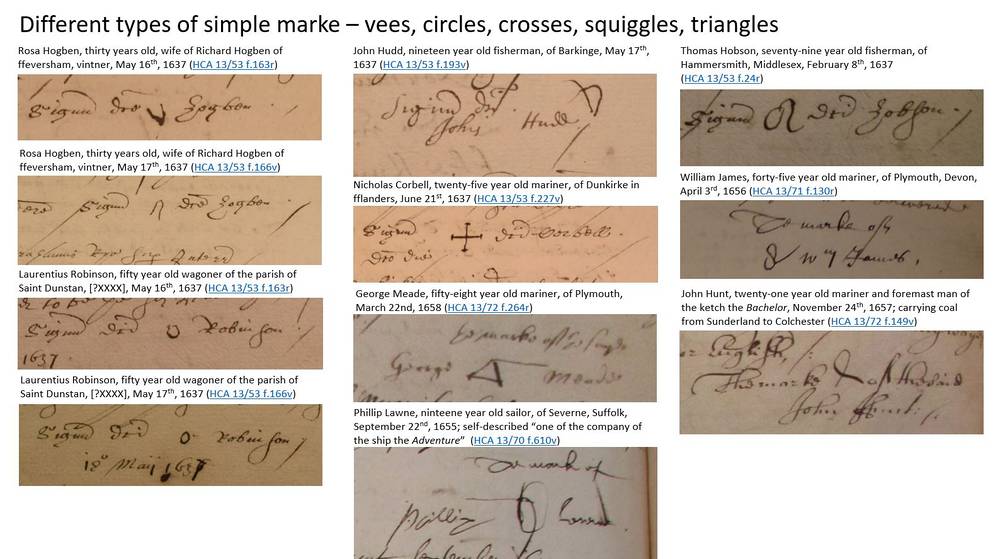 Different types of simple marke – vees, circles, crosses, squiggles, triangles
Rosa Hogben, thirty years old, wife of Richard Hogben of
ffeversham, vintner, May 16th, 1637 (HCA 13/53 f.163r)
Signum dne Hogben
Rosa Hogben, thirty years old, wife of Richard Hogben of
ffeversham, vintner, May 17th, 1637 (HCA 13/53 f.166v)
Signum Hogben
Laurentius Robinson, fifty year old wagoner of the parish of
Saint Dunstan, [?XXXX], May 16th, 1637 (HCA 13/53 f.163r)
Signum dcti Robinson
1637
Laurentius Robinson, fifty year old wagoner of the parish of
Saint Dunstan, [?XXXX], May 17th, 1637 (HCA 13/53 f.166v)
Signum dcti Robinson
18o Maij 1637
John Hudd, nineteen year old fisherman, of Barkinge, May 17th,
1637 (HCA 13/53 f.193v)
Signum
John Hudd
Nicholas Corbell, twenty-five year old mariner, of Dunkirke in
fflanders, June 21st, 1637 (HCA 13/53 f.227v)
Signum dcti Corbell
George Meade, fifty-eight year old mariner, of Plymouth,
March 22nd, 1658 (HCA 13/72 f.264r)
The marke of the sayd
George Meade
Phillip Lawne, ninteene year old sailor, of Severne, Suffolk,
September 22nd, 1655; self-described “one of the company of
the ship the Adventure” (HCA 13/70 f.610v)
The mark of
Phillip Lawne
Thomas Hobson, seventy-nine year old fisherman, of
Hammersmith, Middlesex, February 8th, 1637
(HCA 13/53 f.24r)
Signum dcti Hobson
William James, forty-five year old mariner, of Plymouth, Devon,
April 3rd, 1656 (HCA 13/71 f.130r)
The marke of
Wm James
John Hunt, twenty-one year old mariner and foremast man of
the ketch the Bachelor, November 24th, 1657; carrying coal
from Sunderland to Colchester (HCA 13/72 f.149v)
The marke of the said
John Hunt